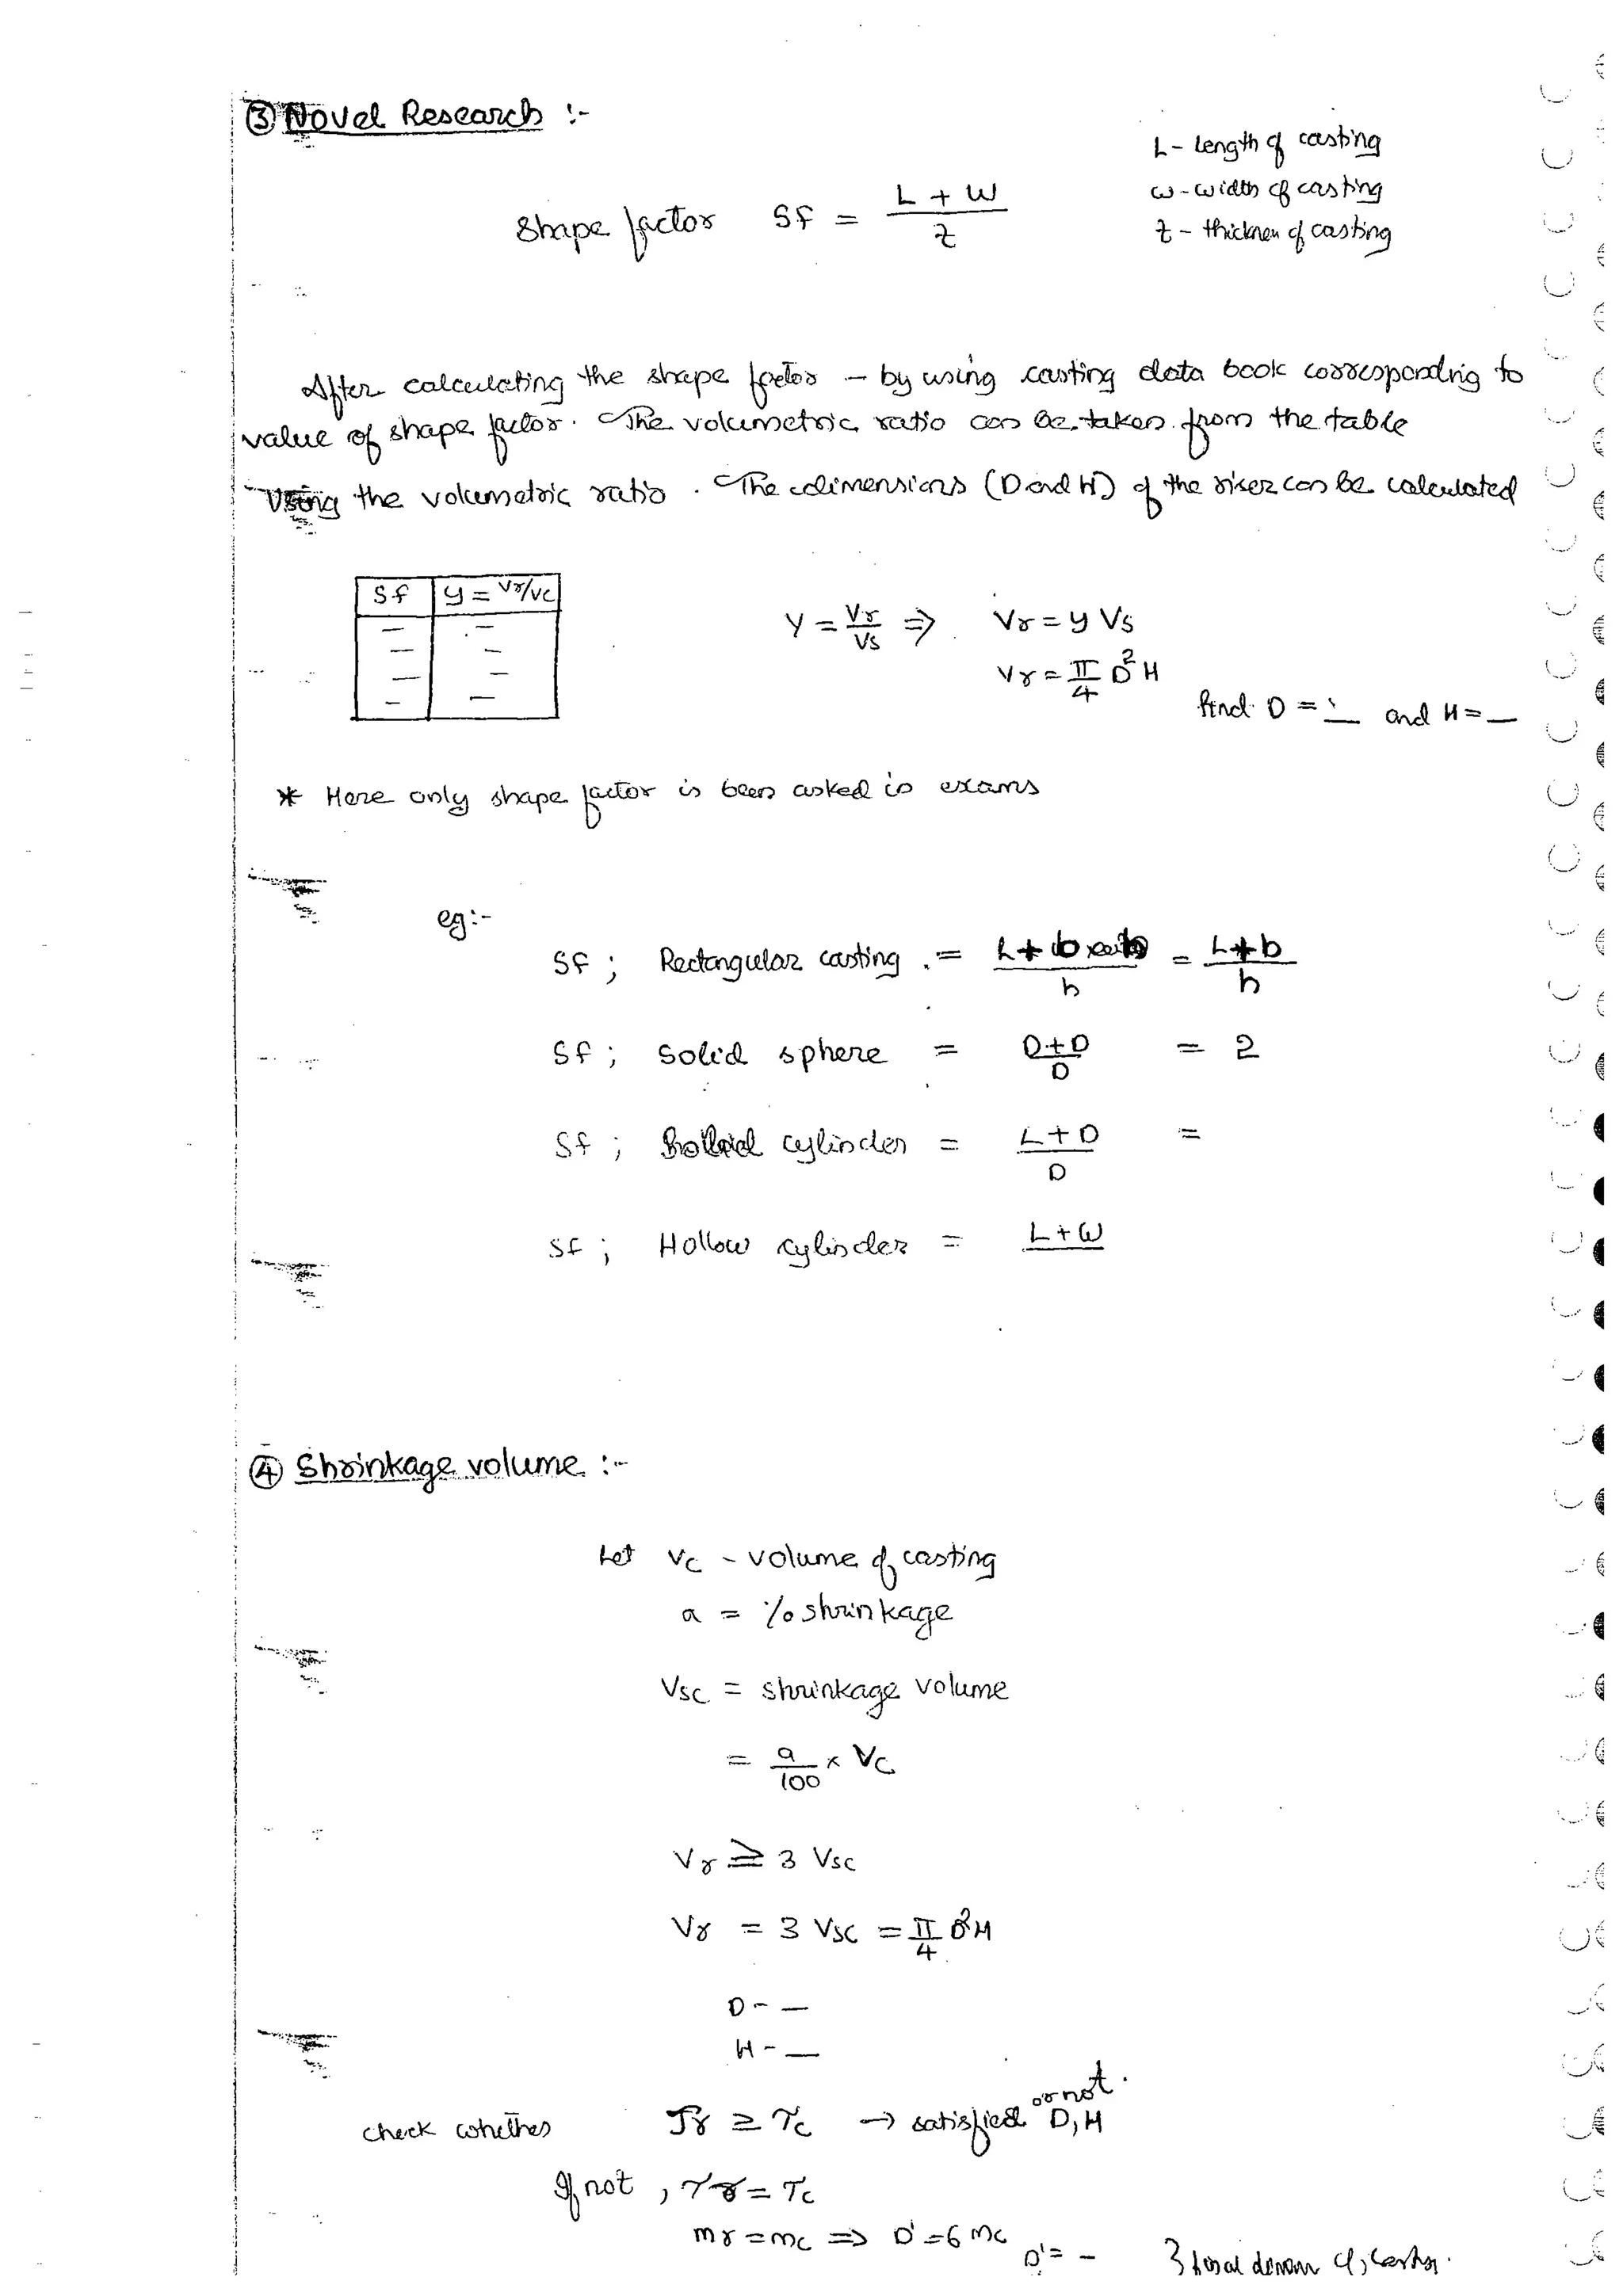 ③ Novel Research :-
L - Length of casting
Shape factor SF = L + W / Z
w - width of casting
z - thicknen of casting
After calculating the shape factor - by using casting data book corresponding to
value of shape factor. The volumetric ratio can be taken from the table
Using the volumetric ratio. The dimensions (D and H) of the riser can be calculated
Sf y = Vr/Vc
Y = Vr/Vs ⇒ Vr = y Vs
Vr = π/4 D²H
find D = — and H = —
* Here only shape factor is been asked in exams
eg:-
SF ; Rectangular casting = L+b / h = L+b / h
SF ; Solid sphere = D+D / D = 2
SF ; cylinder = L+D / D =
SF ; Hollow cylinder = L+W
④ Shrinkage volume :-
Let Vc - volume of casting
a = % shrinkage
Vsc = shrinkage volume
= a/100 × Vc
Vr ≥ 3 Vsc
Vr = 3 Vsc = π/4 D²H
D - —
H - —
check whether τr ≥ τc → satisfied or not. D, H
If not, τr = τc
mr = mc ⇒ D' = 6 mc
D' = -